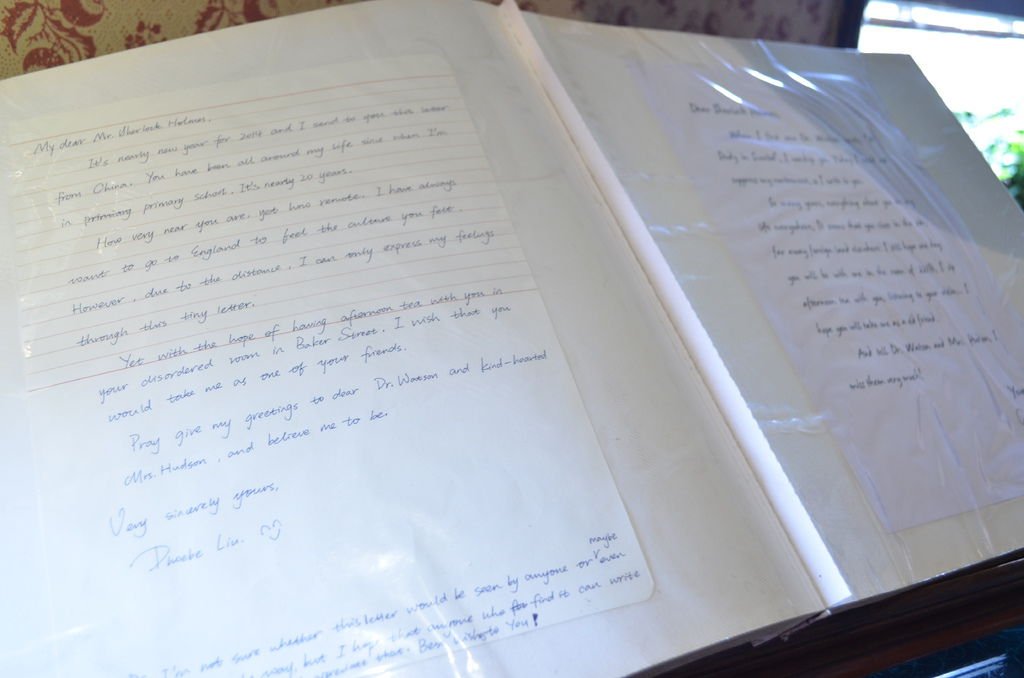 My dear Mr. Sherlock Holmes.
It's nearly new year for 2014 and I send to you this letter
from China. You have been all around my life since when I'm
in primiary primary school. It's nearly 20 years.
How very near you are, yet who remote. I have always
want to go to England to feel the culture you felt.
However, due to the distance, I can only express my feelings
through this tiny letter.
Yet with the hope of having afternoon tea with you in
your disordered room in Baker Street. I wish that you
would take me as one of your friends.
Pray give my greetings to dear Dr. Watson and kind-hearted
Mrs. Hudson, and believe me to be.
Very sincerely yours,
Phoebe Liu.
maybe
I'm not sure whether this letter would be seen by anyone or even
way, but I hope that anyone who for find it can write
that. Best wishes to You!
Dear Sherlock Holmes
When I first
, I
to you.
So many years, everything about you
you will be with me in the room of 221B, I sip
afternoon tea with you, listening to your violin... I
hope you will take me as a old friend.
And tell Dr. Watson and Mrs. Hudson, I
miss them very much!